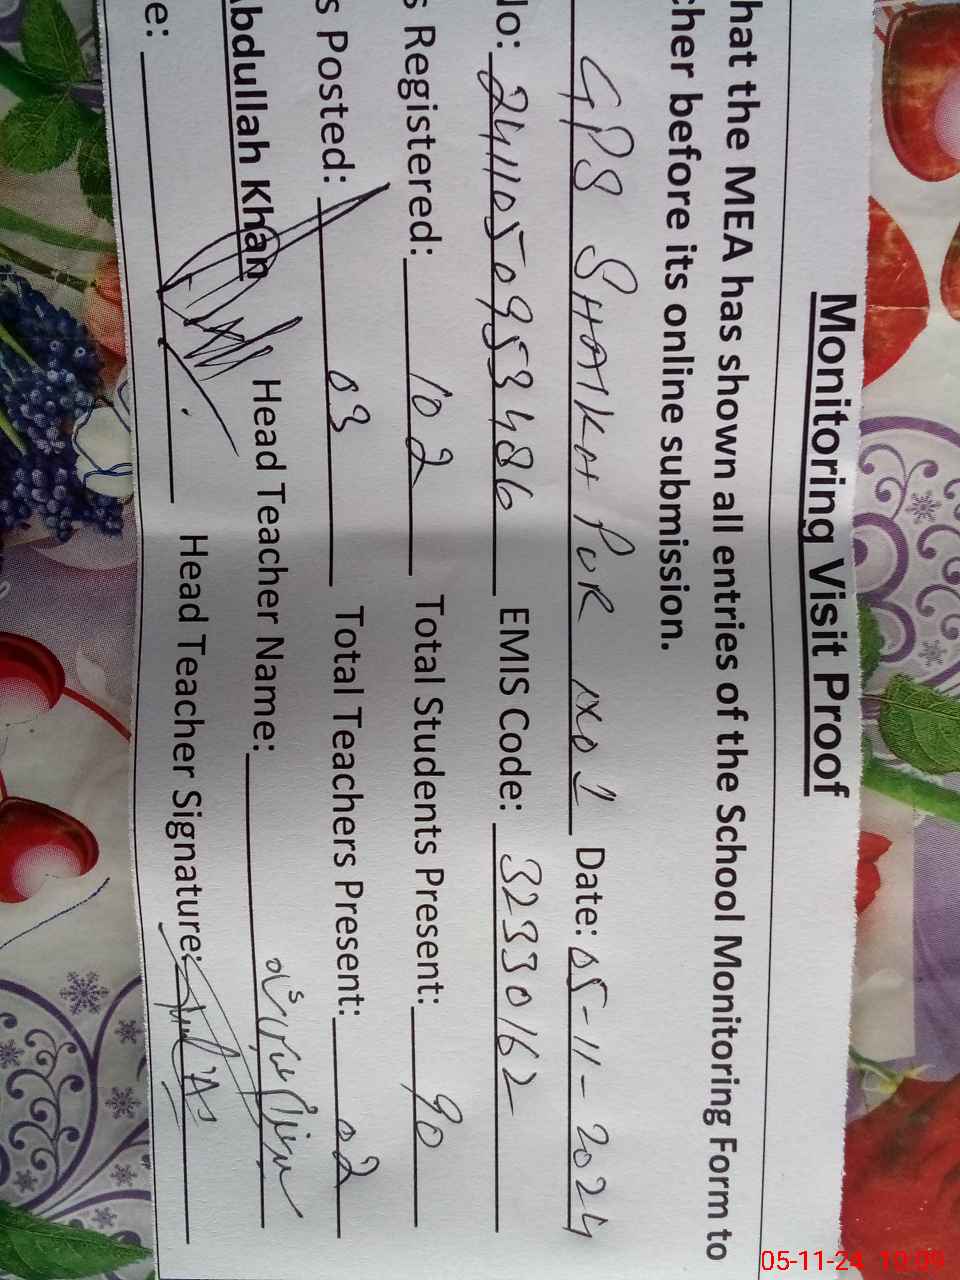 Monitoring Visit Proof
hat the MEA has shown all entries of the School Monitoring Form to
cher before its online submission.
GPS SHAIKH PUR NO 1 Date: 05-11-2024
No: 2411050953486 EMIS Code: 3233062
s Registered: 102 Total Students Present: 90
s Posted: 03 Total Teachers Present: 02
Abdullah Khan Head Teacher Name:
e: Head Teacher Signature:
05-11-24 10:09